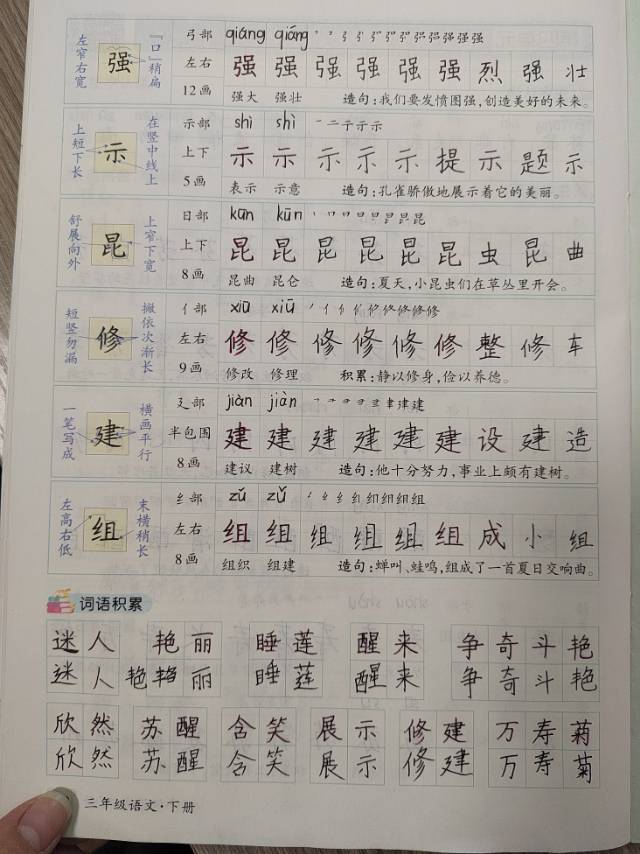 左窄右宽 强 「口」稍扁 弓部 qiáng qiáng
左右 强 强 强 强 强 强 烈 强 壮
12画 强大 强壮 造句:我们要发愤图强,创造美好的未来。
上短下长 示 在竖中线上 示部 shì shì 一二亍示示
上下 示 示 示 示 示 提 示 题 示
5画 表示 示意 造句:孔雀骄傲地展示着它的美丽。
舒展向外 昆 上窄下宽 日部 kūn kūn
上下 昆 昆 昆 昆 昆 昆 虫 昆 曲
8画 昆曲 昆仑 造句:夏天,小昆虫们在草丛里开会。
短竖勿漏 修 撇依次渐长 亻部 xiū xiū
左右 修 修 修 修 修 修 整 修 车
9画 修改 修理 积累:静以修身,俭以养德。
一笔写成 建 横画平行 廴部 jiàn jiàn
半包围 建 建 建 建 建 建 设 建 造
8画 建议 建树 造句:他十分努力,事业上颇有建树。
左高右低 组 末横稍长 纟部 zǔ zǔ
左右 组 组 组 组 组 组 成 小 组
8画 组织 组建 造句:蝉叫、蛙鸣,组成了一首夏日交响曲。
词语积累
迷人 艳丽 睡莲 醒来 争奇斗艳
迷人 艳艳丽 睡莲 醒来 争奇斗艳
欣然 苏醒 含笑 展示 修建 万寿菊
欣然 苏醒 含笑 展示 修建 万寿菊
三年级语文·下册